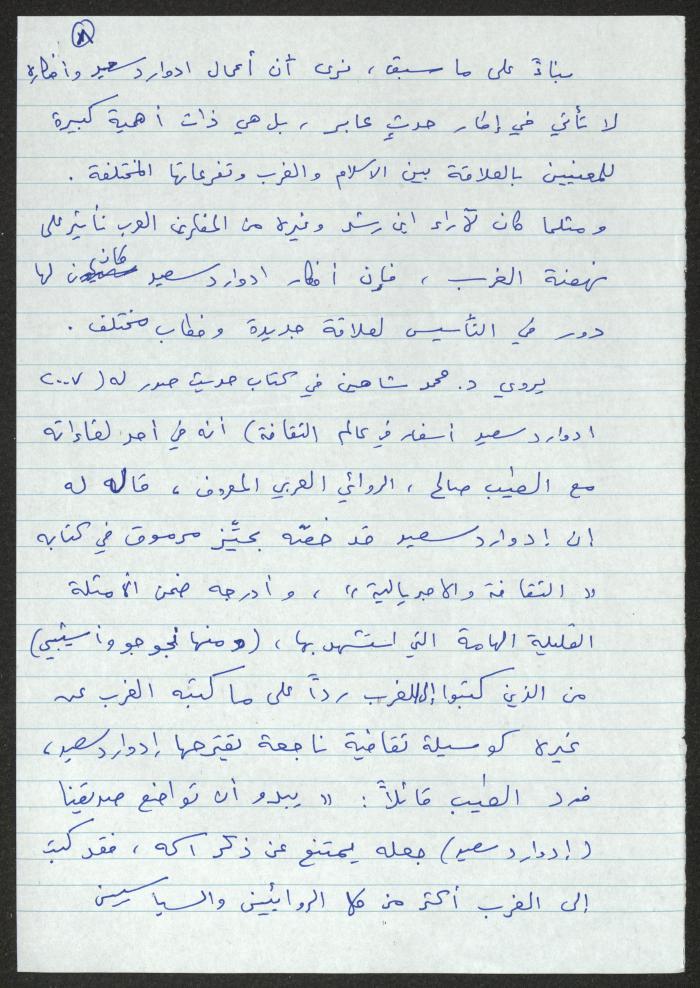 ٨
بناءً على ما سبق ، نرى أن أعمال ادوارد سعيد وأفكاره
لا تأتي في إطار حدثٍ عابر ، بل هي ذات أهمية كبيرة
للمعنيين بالعلاقة بين الاسلام والغرب وتفرعاتها المختلفة .
ومثلما كان لآراء ابن رشد وغيره من المفكرين العرب تأثير على
نهضة الغرب ، فإن أفكار ادوارد سعيد كان لها
دور في التأسيس لعلاقة جديدة وخطاب مختلف .
يروي د. محمد شاهين في كتاب حديث صدر له ( ٢٠٠٧
ادوارد سعيد أسفار في عالم الثقافة ) أنه في أحد لقاءاته
مع الطيب صالح ، الروائي العربي المعروف ، قال له
إن إدوارد سعيد قد خصّه بحيّز مرموق في كتابه
« الثقافة والامبريالية » ، وأدرجه ضمن الأمثلة
القليلة الهامة التي استشهد بها ، ( ومنها نجوجو وأ تشيبي )
من الذين كتبوا إلى الغرب رداً على ما كتبه الغرب عن
غيره كوسيلة ثقافية ناجعة يقترحها إدوارد سعيد ،
فرد الطيب قائلاً : « يبدو أن تواضع صديقنا
( إدوارد سعيد ) جعله يمتنع عن ذكر اسمه ، فقد كتب
إلى الغرب أكثر من كل الروائيين والسياسيين